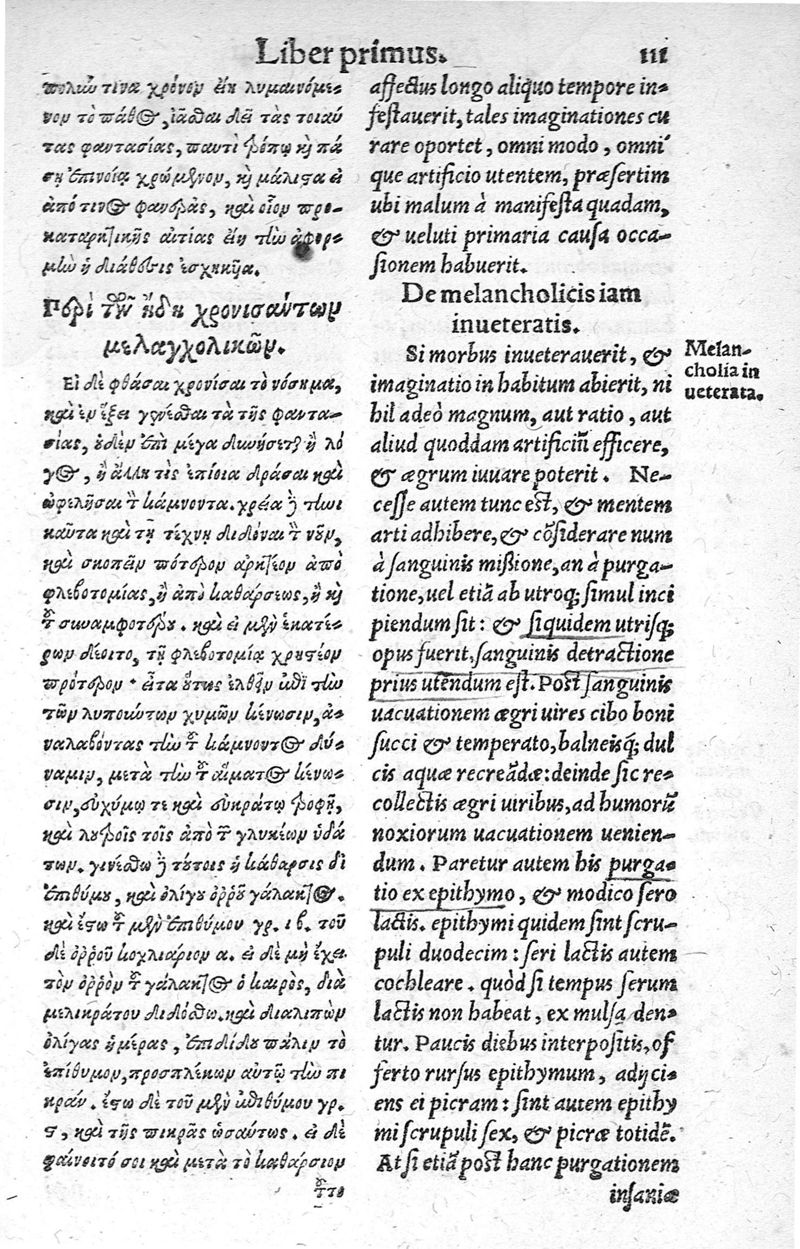 Liber primus. 111
πολιὼ τινα χρόνον εἴη λυμαινόμε-
νον τὸ πάθος, ἰᾶσθαι δεῖ τὰς τοιαύ
τας φαντασίας, παντὶ τρόπῳ καὶ πά
σῃ ἐπινοίᾳ χρώμενον, καὶ μάλιστα εἰ
ἀπό τινος φανερᾶς, καὶ οἷον προ-
καταρκτικῆς αἰτίας εἴη τὴν ἀφορ-
μὴν ἡ διάθεσις ἐσχηκυῖα.
Περὶ τῶν ἤδη χρονισάντων
μελαγχολικῶν.
Εἰ δὲ φθάσαι χρονίσαι τὸ νόσημα,
καὶ ἐν ἕξει γενέσθαι τὰ τῆς φαντα-
σίας, οὐδὲν ἐπὶ μέγα δυνήσεται ἢ λό
γος, ἢ ἄλλη τις ἐπίνοια δρᾶσαι καὶ
ὠφελῆσαι τὸν κάμνοντα. χρεία δὲ τηνι
καῦτα καὶ τῇ τέχνῃ διδόναι τὸν νοῦν,
καὶ σκοπεῖν πότερον ἀρκτέον ἀπὸ
φλεβοτομίας, ἢ ἀπὸ καθάρσεως, ἢ καὶ
τοῦ συναμφοτέρου. καὶ εἰ μὲν ἑκατέ-
ρων δέοιτο, τῇ φλεβοτομίᾳ χρηστέον
πρότερον· εἶτα οὕτως ἐλθεῖν ἐπὶ τὴν
τῶν λυπούντων χυμῶν κένωσιν, ἀ-
ναλαβόντας τὴν τοῦ κάμνοντος δύ-
ναμιν, μετὰ τὴν τοῦ αἵματος κένω-
σιν, εὐχύμῳ τε καὶ εὐκράτῳ τροφῇ,
καὶ λουτροῖς τοῖς ἀπὸ τῶν γλυκέων ὑδά
των. γινέσθω δὲ τούτοις ἡ κάθαρσις δι
ἐπιθύμου, καὶ ὀλίγου ὀρροῦ γάλακτος.
καὶ ἔστω τοῦ μὲν ἐπιθύμου γρ. ιβ. τοῦ
δὲ ὀρροῦ κοχλιάριον α. εἰ δὲ μὴ ἔχει
τὸν ὀρρὸν τοῦ γάλακτος ὁ καιρὸς, διὰ
μελικράτου διδόσθω. καὶ διαλιπὼν
ὀλίγας ἡμέρας, ἐπιδίδου πάλιν τὸ
ἐπίθυμον, προσπλέκων αὐτῷ τὴν πι
κράν. ἔστω δὲ τοῦ μὲν ἐπιθύμου γρ.
ϛ, καὶ τῆς πικρᾶς ὡσαύτως. εἰ δὲ
φαίνοιτό σοι καὶ μετὰ τὸ καθάρσιον
affectus longo aliquo tempore in-
festauerit, tales imaginationes cu
rare oportet, omni modo, omni´
que artificio utentem, præsertim
ubi malum à manifesta quadam,
& ueluti primaria causa occa-
sionem habuerit.
De melancholicis iam
inueteratis.
Si morbus inueterauerit, &
imaginatio in habitum abierit, ni
hil adeò magnum, aut ratio, aut
aliud quoddam artificiũ efficere,
& ægrum iuuare poterit. Ne-
cesse autem tunc est, & mentem
arti adhibere, & cõsiderare num
à sanguinis missione, an à purga-
tione, uel etiã ab utroq; simul inci
piendum sit: & siquidem utrisq;
opus fuerit, sanguinis detractione
prius utendum est. Post sanguinis
uacuationem ægri uires cibo boni
succi & temperato, balneisq́; dul
cis aquæ recreãdæ: deinde sic re-
collectis ægri uiribus, ad humorũ
noxiorum uacuationem uenien-
dum. Paretur autem his purga-
tio ex epithymo, & modico sero
lactis. epithymi quidem sint scru-
puli duodecim: seri lactis autem
cochleare. quòd si tempus serum
lactis non habeat, ex mulsa den-
tur. Paucis diebus interpositis, of
ferto rursus epithymum, adijci-
ens ei picram: sint autem epithy
mi scrupuli sex, & picræ totidẽ.
At si etiã post hanc purgationem
insaniæ
Melan-
cholia in
ueterata.